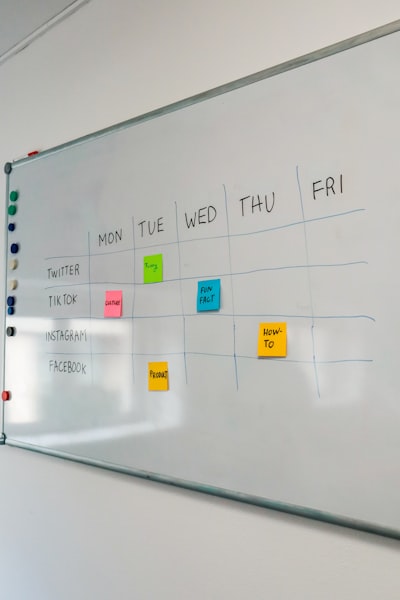 MON TUE WED THU FRI
TWITTER
TIKTOK
FUN
FACT
INSTAGRAM
HOW-
TO
FACEBOOK
PRODUCT